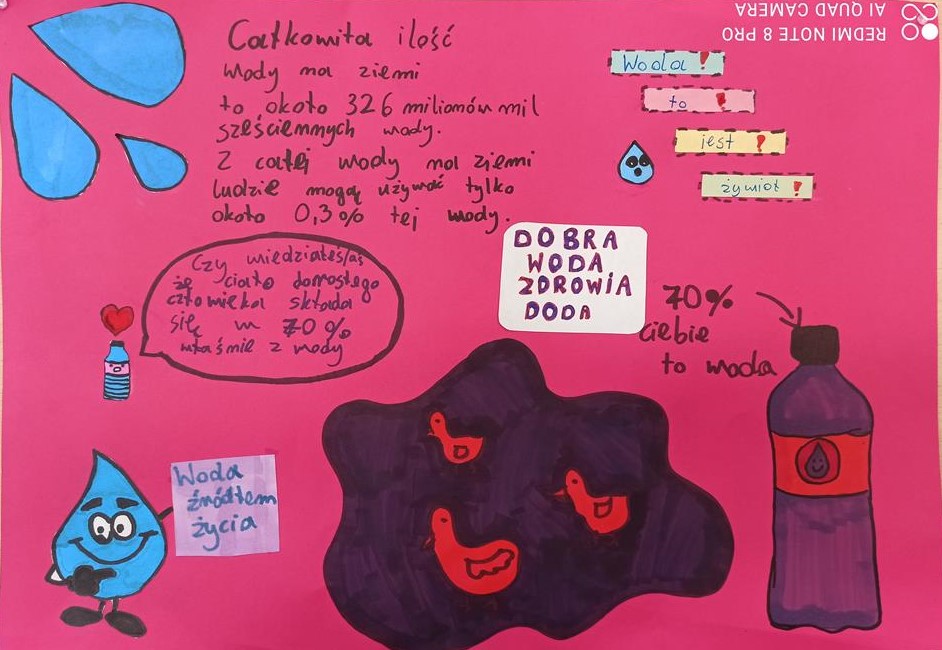 Całkowita ilość
wody na ziemi
to około 326 milionów mil
sześciennych wody.
Z całej wody na ziemi
ludzie mogą używać tylko
około 0,3% tej wody.
Woda!
to !
jest !
żywioł !
DOBRA
WODA
ZDROWIA
DODA
Czy wiedziałeś/aś
że ciało dorosłego
człowieka składa
się w 70%
właśnie z wody
70%
ciebie
to woda
Woda
źródłem
życia
REDMI NOTE 8 PRO
AI QUAD CAMERA